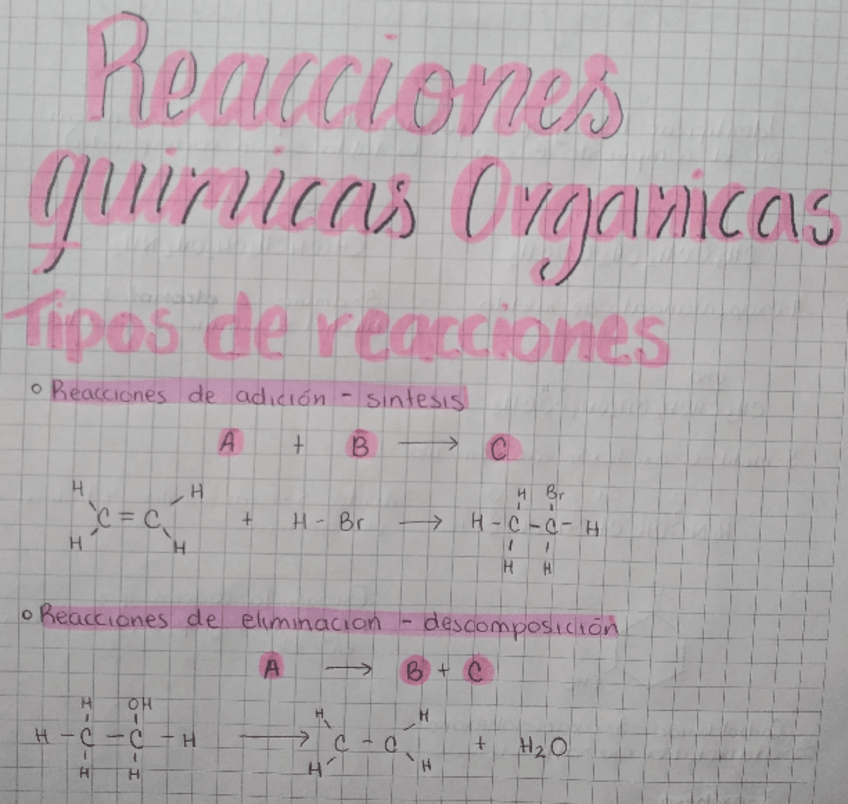 Reacciones
quimicas Organicas
Tipos de reacciones
o Reacciones de adición - sintesis
A + B → C
H H H Br
C = C + H - Br → H - C - C - H
H H H H
o Reacciones de eliminacion - descomposición
A → B + C
H OH H H
H - C - C - H → C - C + H2O
H H H H